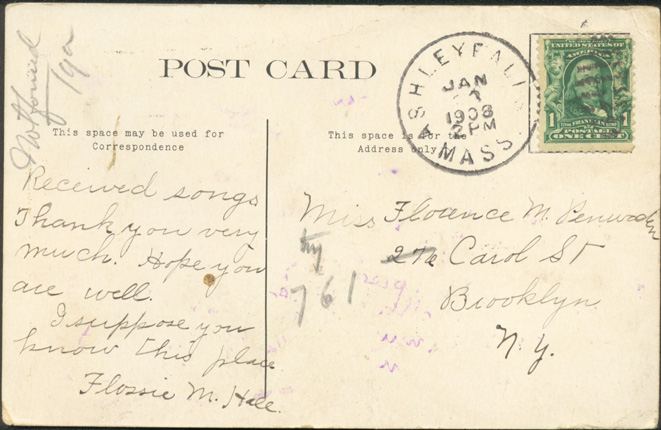 POST CARD
This space may be used for
Correspondence
This space is for the
Address only
ASHLEY FALLS
JAN
1908
2 PM
MASS.
UNITED STATES OF
AMERICA
1
1
POSTAGE
ONE CENT
Received songs
Thank you very
much. Hope you
are well.
I suppose you
know this place
Flossie M. Hall.
Miss Florence M.
Carol St
try
761
Brooklyn
N.Y.